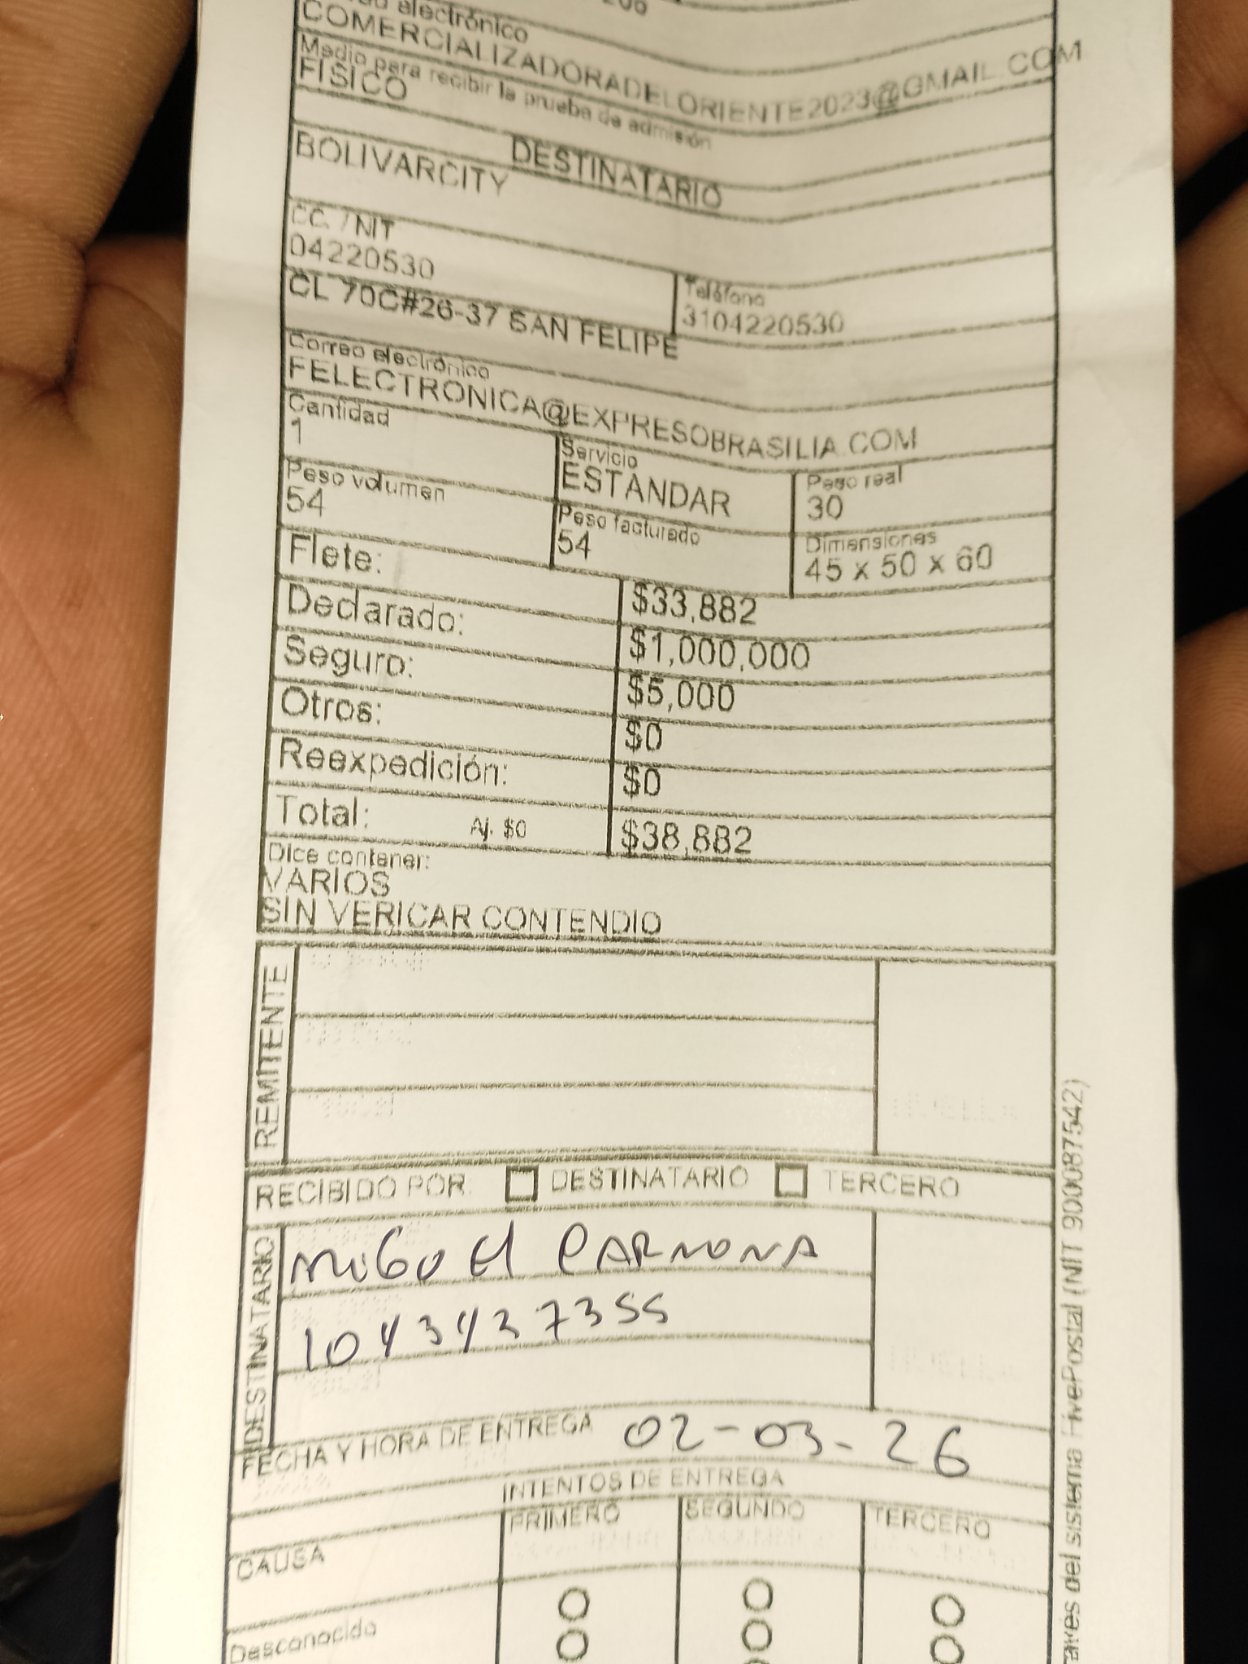 electrónico
COMERCIALIZADORADELORIENTE2023@GMAIL.COM
Medio para recibir la prueba de admisión
FISICO
DESTINATARIO
BOLIVARCITY
CC. /NIT
04220530
Teléfono
3104220530
CL 70C#26-37 SAN FELIPE
Correo electrónico
FELECTRONICA@EXPRESOBRASILIA.COM
Cantidad
1
Servicio
ESTANDAR
Peso real
30
Peso volumen
54
Peso facturado
54
Dimensiones
45 x 50 x 60
Flete: $33,882
Declarado: $1,000,000
Seguro: $5,000
Otros: $0
Reexpedición: $0
Total: Aj. $0 $38,882
Dice contener:
VARIOS
SIN VERICAR CONTENDIO
REMITENTE
RECIBIDO POR DESTINATARIO TERCERO
DESTINATARIO
MiGuEl CARMONA
1043437355
FECHA Y HORA DE ENTREGA 02-03-26
INTENTOS DE ENTREGA
CAUSA PRIMERO SEGUNDO TERCERO
Desconocido
través del sistema FivePostal (NIT 900087542)